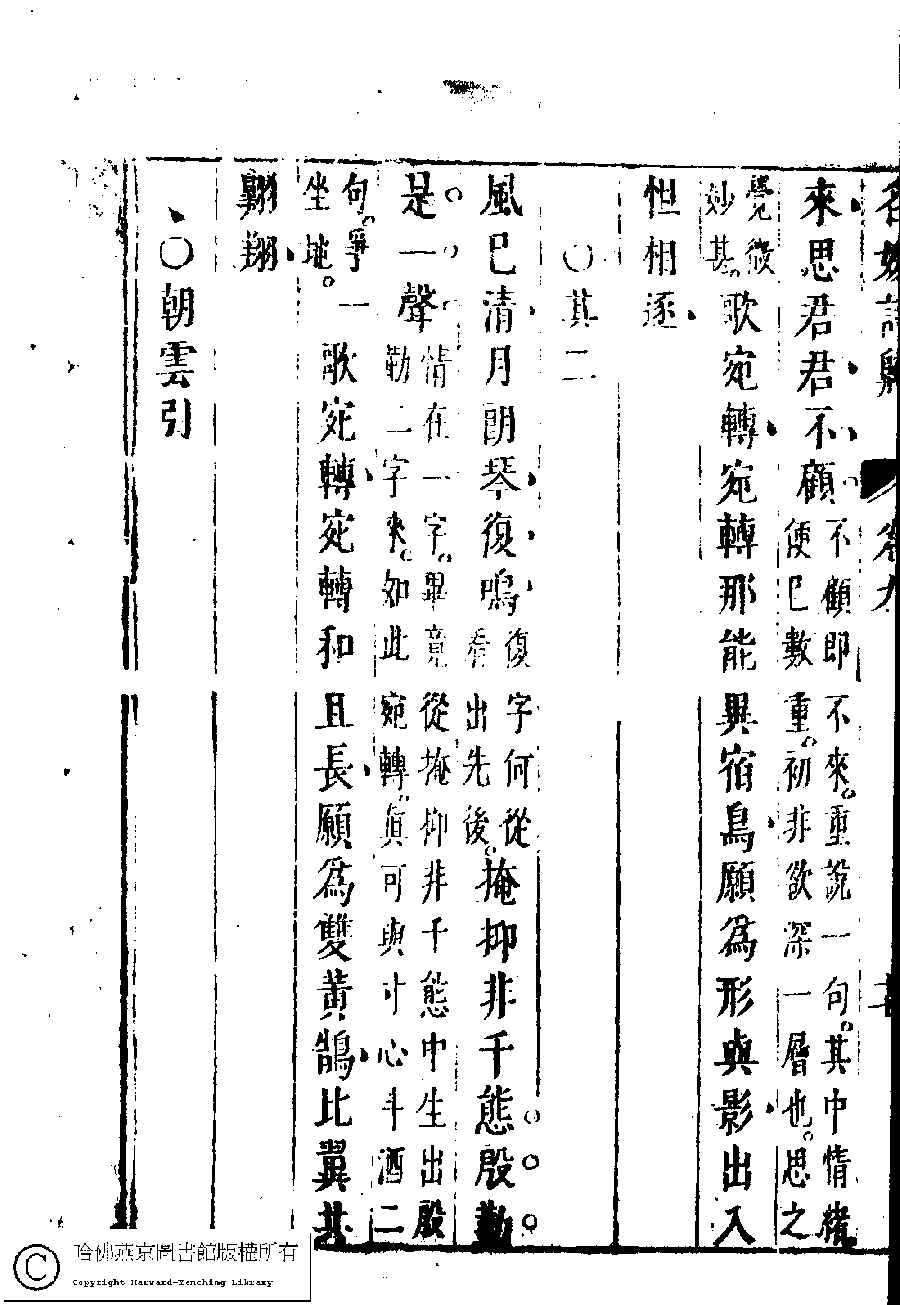 名媛詩歸 卷九
來思君君不顧不顧即不來。重說一句。其中情緒
便已數重。初非欲深一層也。思之
覺微
妙甚。歌宛轉宛轉那能異宿鳥願爲形與影出入
恒相逐
○其二
風已清月朗琴復鳴復字何從
看出先後。掩抑非千態殷勤
是一聲情在一字。畢竟從掩抑非千態中生出殷
勤二字來。如此宛轉。眞可與寸心斗酒二
句。爭
坐地。一歌宛轉宛轉和且長願爲雙黃鵠比翼共
翺翔
○朝雲引
哈佛燕京圖書館版權所有
Copyright Harvard-Yenching Library